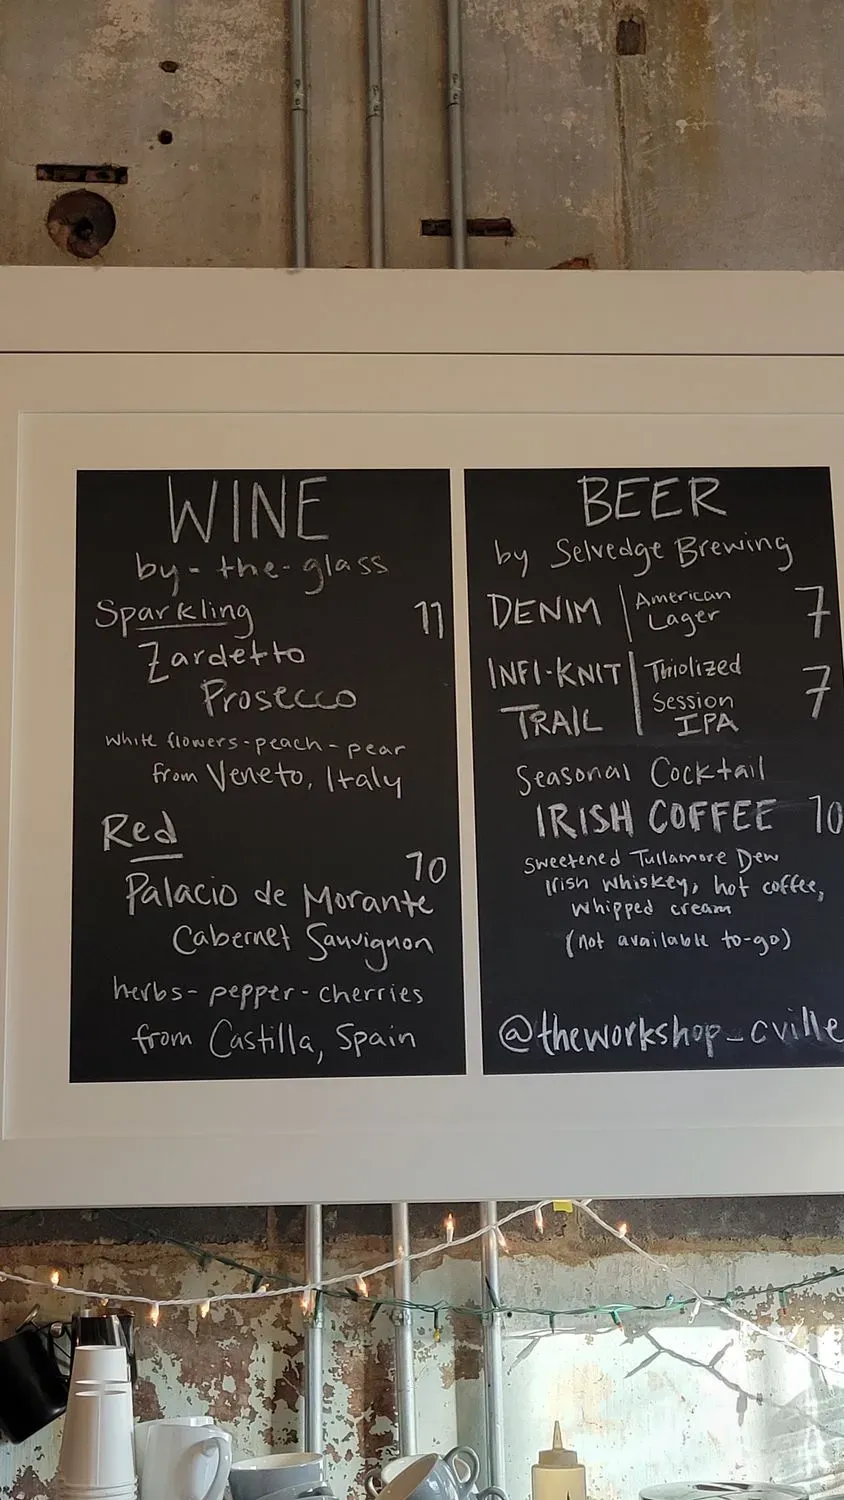 WINE
by-the-glass
Sparkling 11
Zardetto
Prosecco
White flowers-peach-pear
from Veneto, Italy
Red
10
Palacio de Morante
Cabernet Sauvignon
herbs-pepper-cherries
from Castilla, Spain
BEER
by Selvedge Brewing
DENIM | American Lager 7
INFI-KNIT TRAIL | Thiolized Session IPA 7
Seasonal Cocktail
IRISH COFFEE 10
sweetened Tullamore Dew
Irish whiskey, hot coffee,
whipped cream
(not available to-go)
@theworkshop_cville